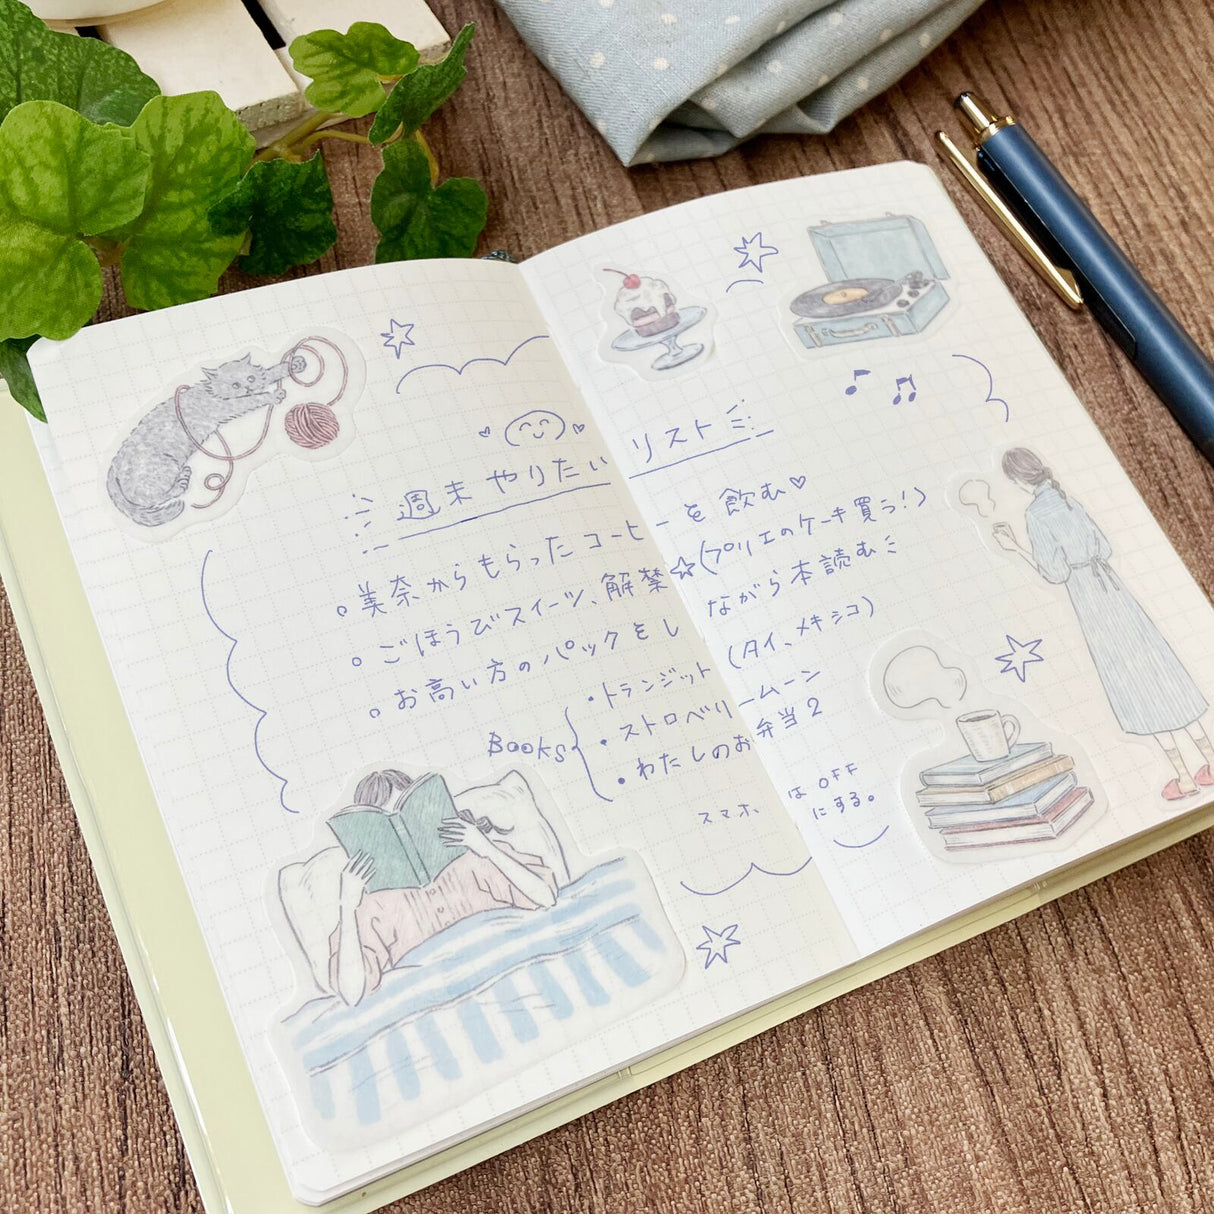 週末やりたいリスト
美奈からもらったコーヒーを飲む♡
ごほうびスイーツ、解禁☆(プリエのケーキ買う!)
お高い方のパックをしながら本読む
Books
・トランジット(タイ、メキシコ)
・ストロベリームーン
・わたしのお弁当2
スマホはOFF
にする。